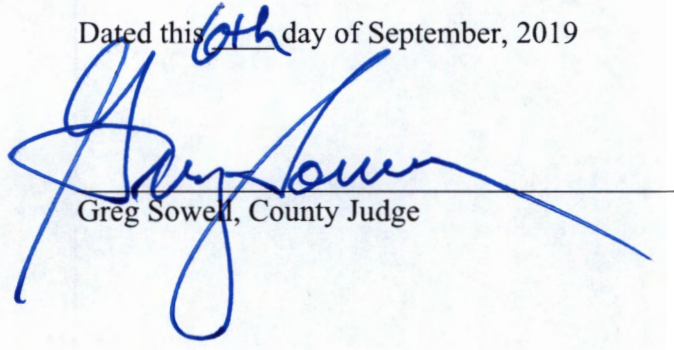 Dated this 6th day of September, 2019
Greg Sowell
Greg Sowell, County Judge